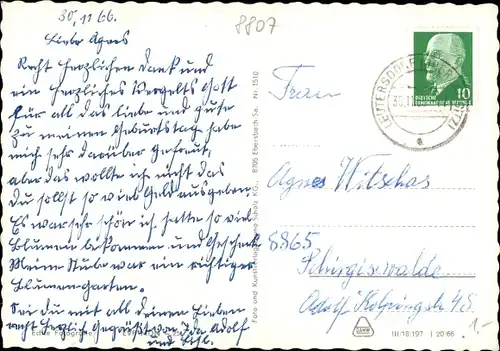 30.11.66.
8807
Liebe Agnes
Recht herzlichen Dank und
ein herzliches Vergelts Gott
für all das liebe und gute
zu meinen Geburtstag habe
mich sehr darüber gefreut,
aber das wollte ich nicht das
du sollst so viel Geld ausgeben.
Es war sehr schön ich hatte so viel
Blumen bekommen und Geschenk
Meine Stube war ein richtiger
Blumen-Garten.
Sei du mit all deinen Lieben
recht herzlich gegrüßt von Ida, Adolf
und
Echte Fotografie
Foto und Kunst Scholz KG., 8705 Ebersbach Sa. Nr. 1510
DEUTSCHE
DEMOKRATISCHE REPUBLIK
10
Frau
Agnes Witschas
8865
Schirgiswalde
Adolf Kolpingstr 48.
III/18/197 I 20 66
1.-